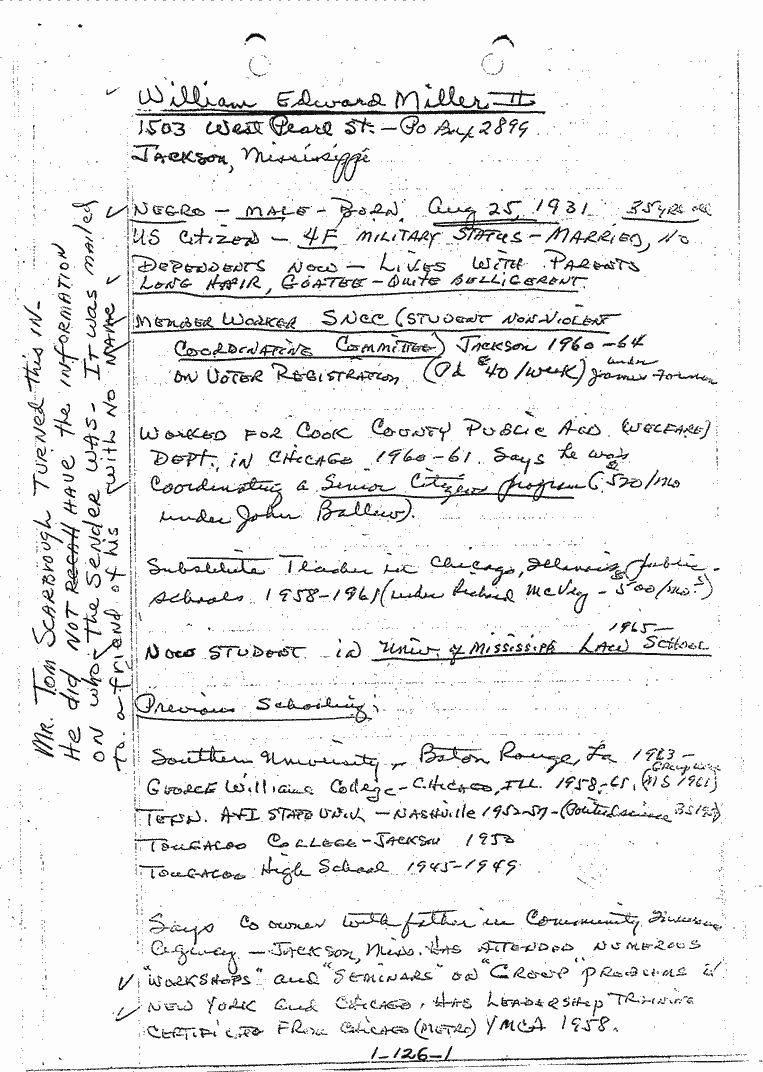 William Edward Miller II
1503 West Pearl St. – PO Box 2899
Jackson, Mississippi
Negro – Male – Born Aug 25, 1931 35 yrs old
US Citizen – 4F Military Status – Married, No
Dependents Now – Lives with Parents
Long Hair, Goatee – Quite Belligerent.
Member Worker SNCC (Student Nonviolent
Coordinating Committee) Jackson 1960–64
on Voter Registration (Pd $40/week) under James Forman
Worked for Cook County Public Aid (Welfare)
Dept. in Chicago 1960–61. Says he was
Coordinating a Senior Citizens program ($520/mo
under John Ballew).
Substitute Teacher in Chicago, Illinois public
schools 1958–1961 (under Richard McVey – $500/mo.)
Now Student in Univ. of Mississippi Law School 1965–
Previous Schooling:
Southern University, Baton Rouge, La 1963–
George Williams College – Chicago, Ill. 1958– (MS 1961)
Tenn. A+I State Univ. – Nashville 1952–57 – (Political science
Tougaloo College – Jackson 1950
Tougaloo High School 1945–1949
Says co owner with father in Community
Agency – Jackson, Miss. Has attended numerous
"Workshops" and "Seminars" on "Group" problems in
New York and Chicago. Has Leadership Training
Certificate from Chicago (Metro) YMCA 1958.
1-126-1
Mr. Tom Scarbrough turned this in–
He did not have the information
on who the sender was. It was mailed
to a friend of his with no name